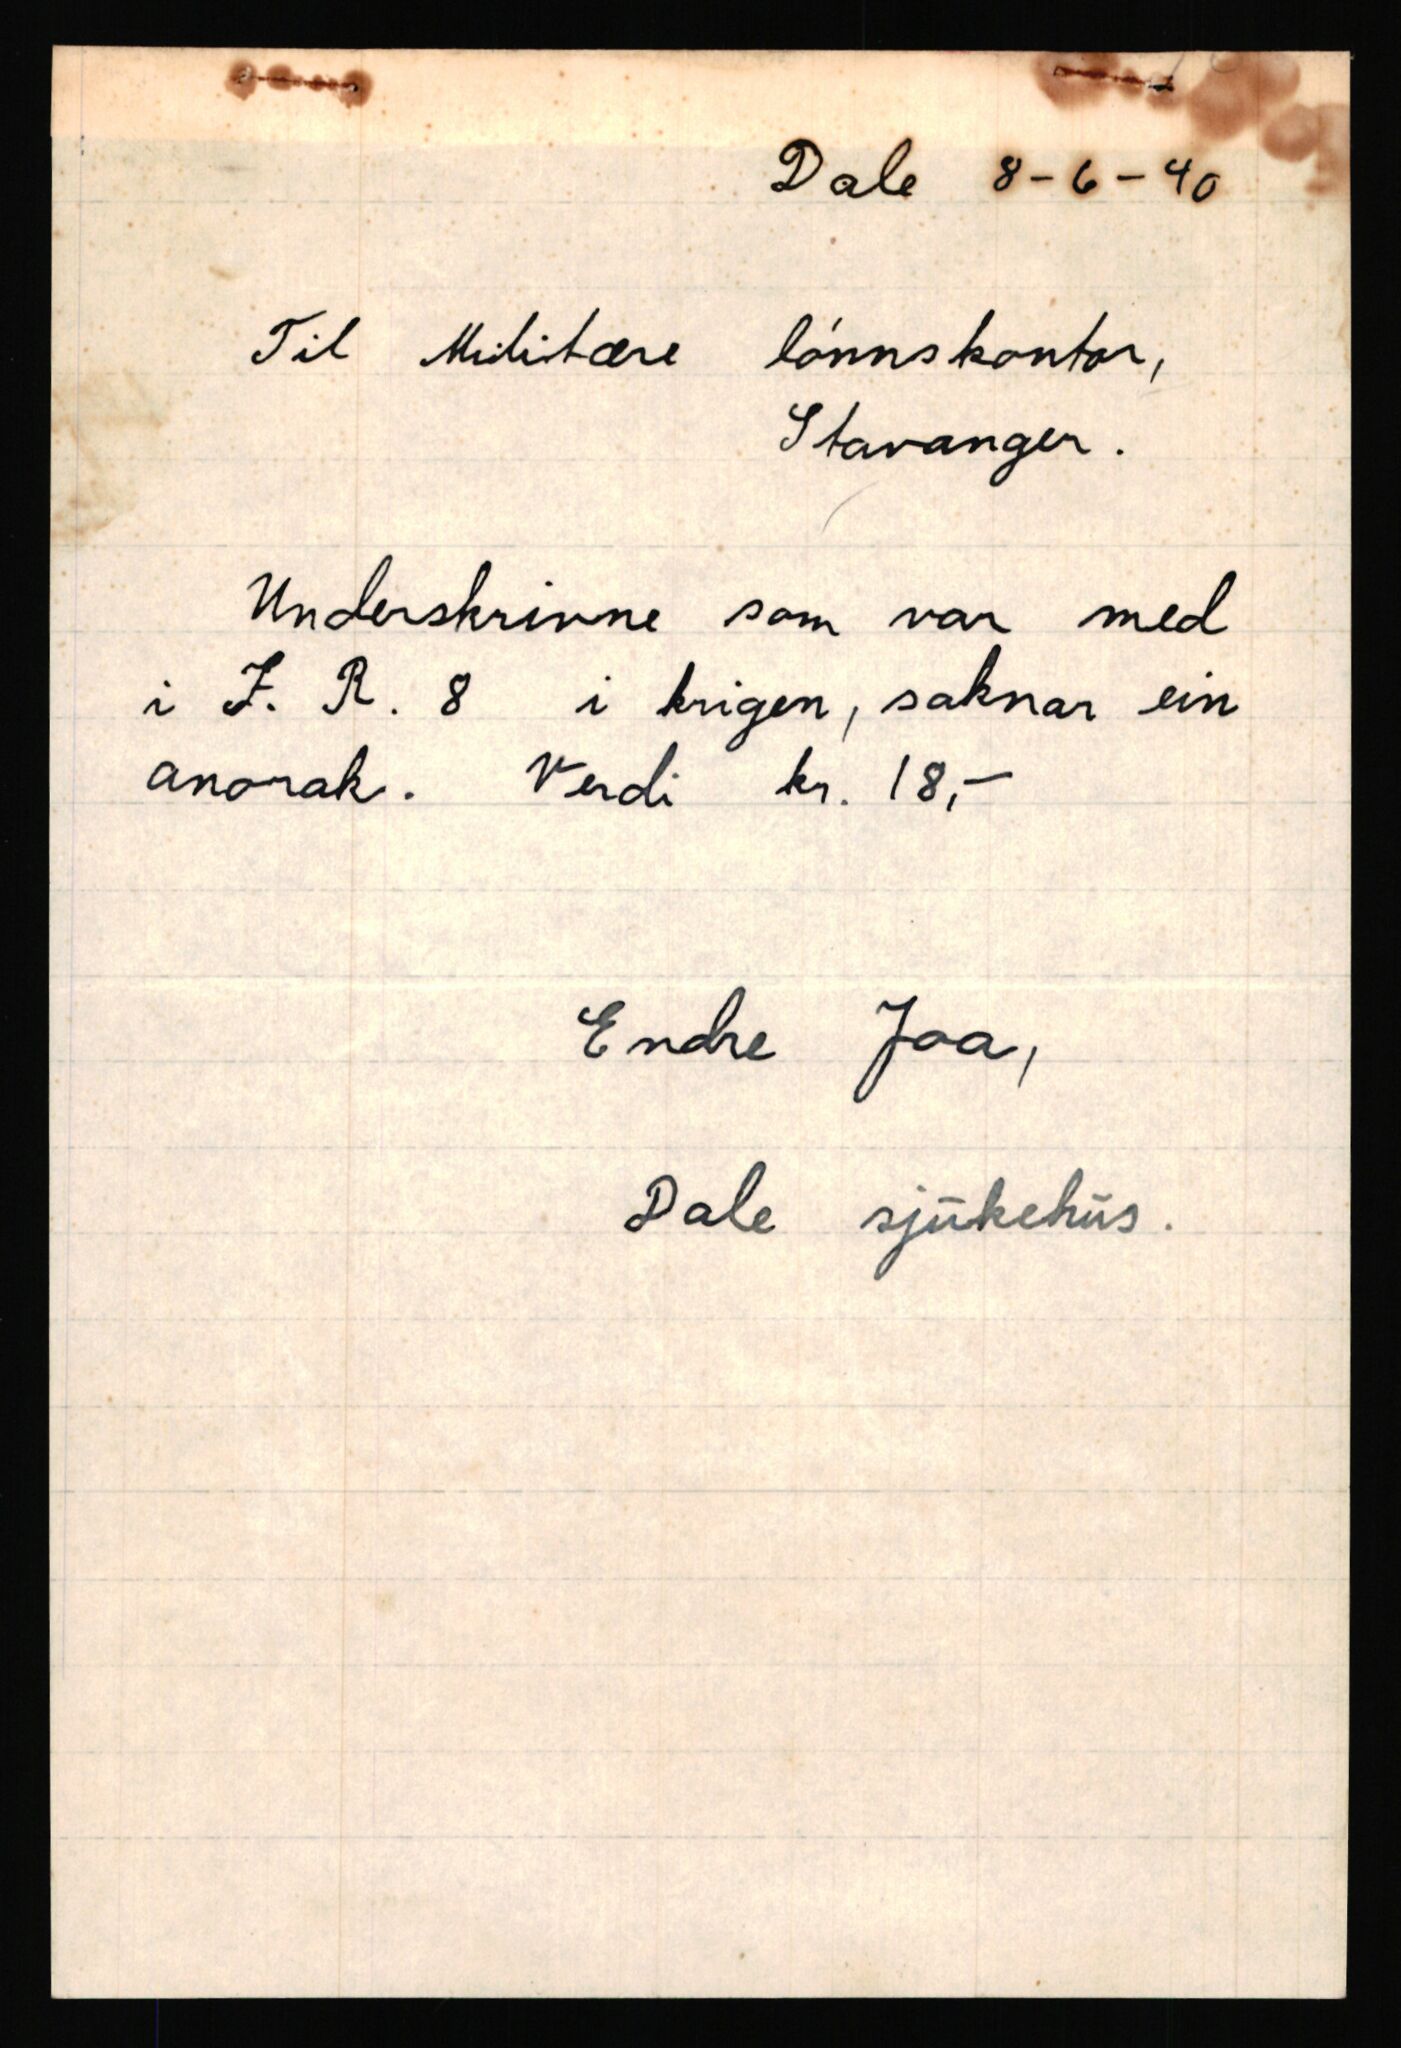 Dale 8-6-40
Til Militære lónnskontor,
Stavanger.
Underskrivne som var med
i I. R. 8 i krigen, saknar ein
anorak. Verdi kr. 18,-
Endre Joa,
Dale sjūkehūs.